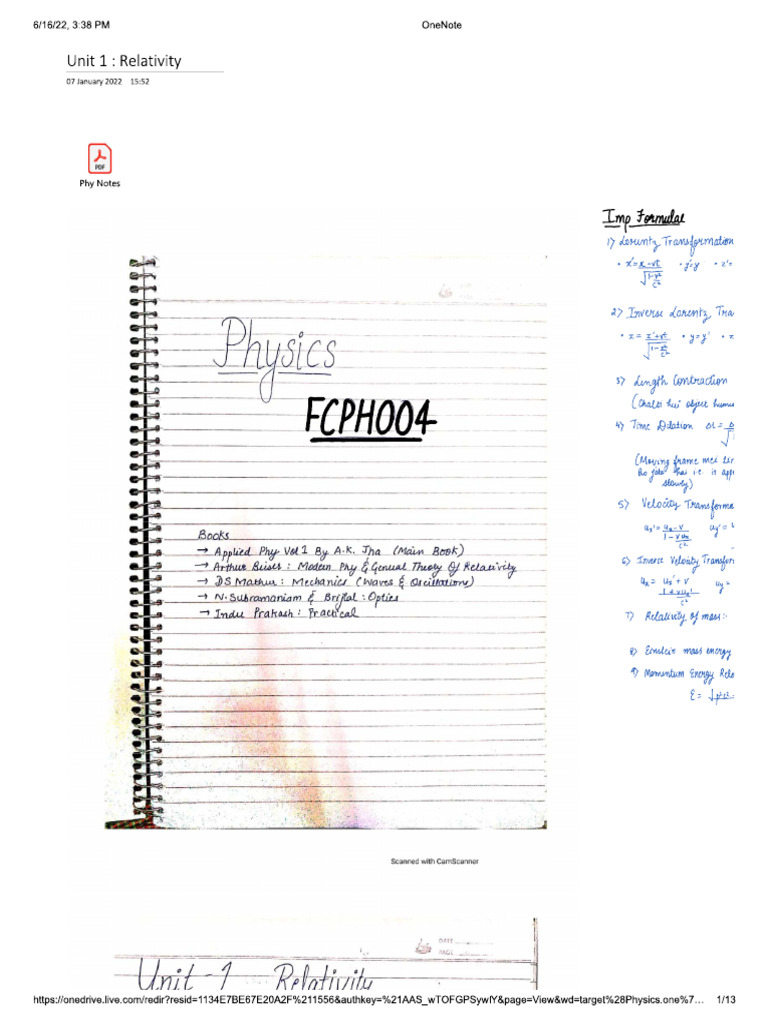 6/16/22, 3:38 PM
OneNote
Unit 1 : Relativity
07 January 2022 15:52
PDF
Phy Notes
Physics
FCPH004
Books
→ Applied Phy Vol 1 By A.K. Jha (Main Book)
→ Arthur Beiser : Modern Phy & General Theory Of Relativity
→ DS Mathur : Mechanics (Waves & Oscillations)
→ N. Subramaniam & Brijlal : Optics
→ Indu Prakash : Practical
Scanned with CamScanner
Imp Formulae
1) Lorentz Transformation
• x'= x-vt • y'=y • z'=
√1-v²
c²
2) Inverse Lorentz Tra
• x = x'+vt • y=y'
√1-v²
c²
3) Length Contraction
(Chalti hui object
4) Time Dilation
(Moving frame mei
slowly)
5) Velocity Transforma
ux'= ux-v uy'=
1-vux
c²
6) Inverse Velocity Transfor
ux = ux'+v uy =
1+vux'
c²
7) Relativity Of mass:-
8) Einstein mass energy
9) Momentum Energy Rela
E =
DATE
PAGE
Unit -1 Relativity
https://onedrive.live.com/redir?resid=1134E7BE67E20A2F%211556&authkey=%21AAS_wTOFGPSywlY&page=View&wd=target%28Physics.one%7… 1/13